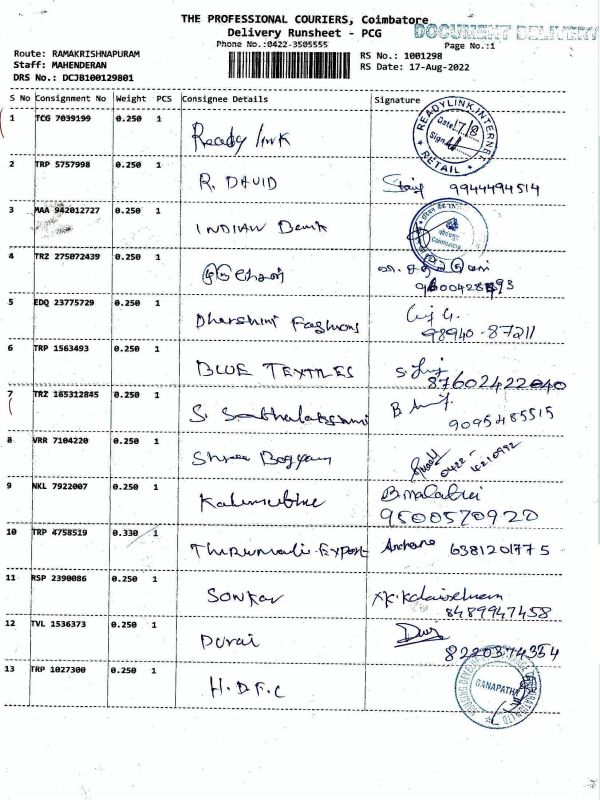 THE PROFESSIONAL COURIERS, Coimbatore
DOCUMENT DELIVERY
Delivery Runsheet - PCG
Phone No.:0422-3505555
Page No.:1
Route: RAMAKRISHNAPURAM
RS No.: 1001298
Staff: MAHENDERAN
RS Date: 17-Aug-2022
DRS No.: DCJB100129801
S No Consignment No Weight PCS Consignee Details Signature
1 TCG 7039199 0.250 1 Ready link
READYLINK INTERNET
Date: 17/8
Sign
* RETAIL *
2 TRP 5757998 0.250 1 R. DAVID 9944494514
3 MAA 942012727 0.250 1 INDIAN Bank
4 TRZ 275072439 0.250 1
5 EDQ 23775729 0.250 1 Dharshini Fashions 98940-87211
6 TRP 1563493 0.250 1 BLUE TEXTILES 87602422040
7 TRZ 165312845 0.250 1 S. Sabthalakshmi 9095485515
8 VRR 7104220 0.250 1 Shree Bogyam
0422-
9 NKL 7922007 0.250 1 9500570920
10 TRP 4758519 0.330 1 Thirumali Export Archana 6381201775
11 RSP 2390086 0.250 1 8489947458
12 TVL 1536373 0.250 1 Durai 8220374354
13 TRP 1027300 0.250 1 H.D.F.C
GANAPATHY